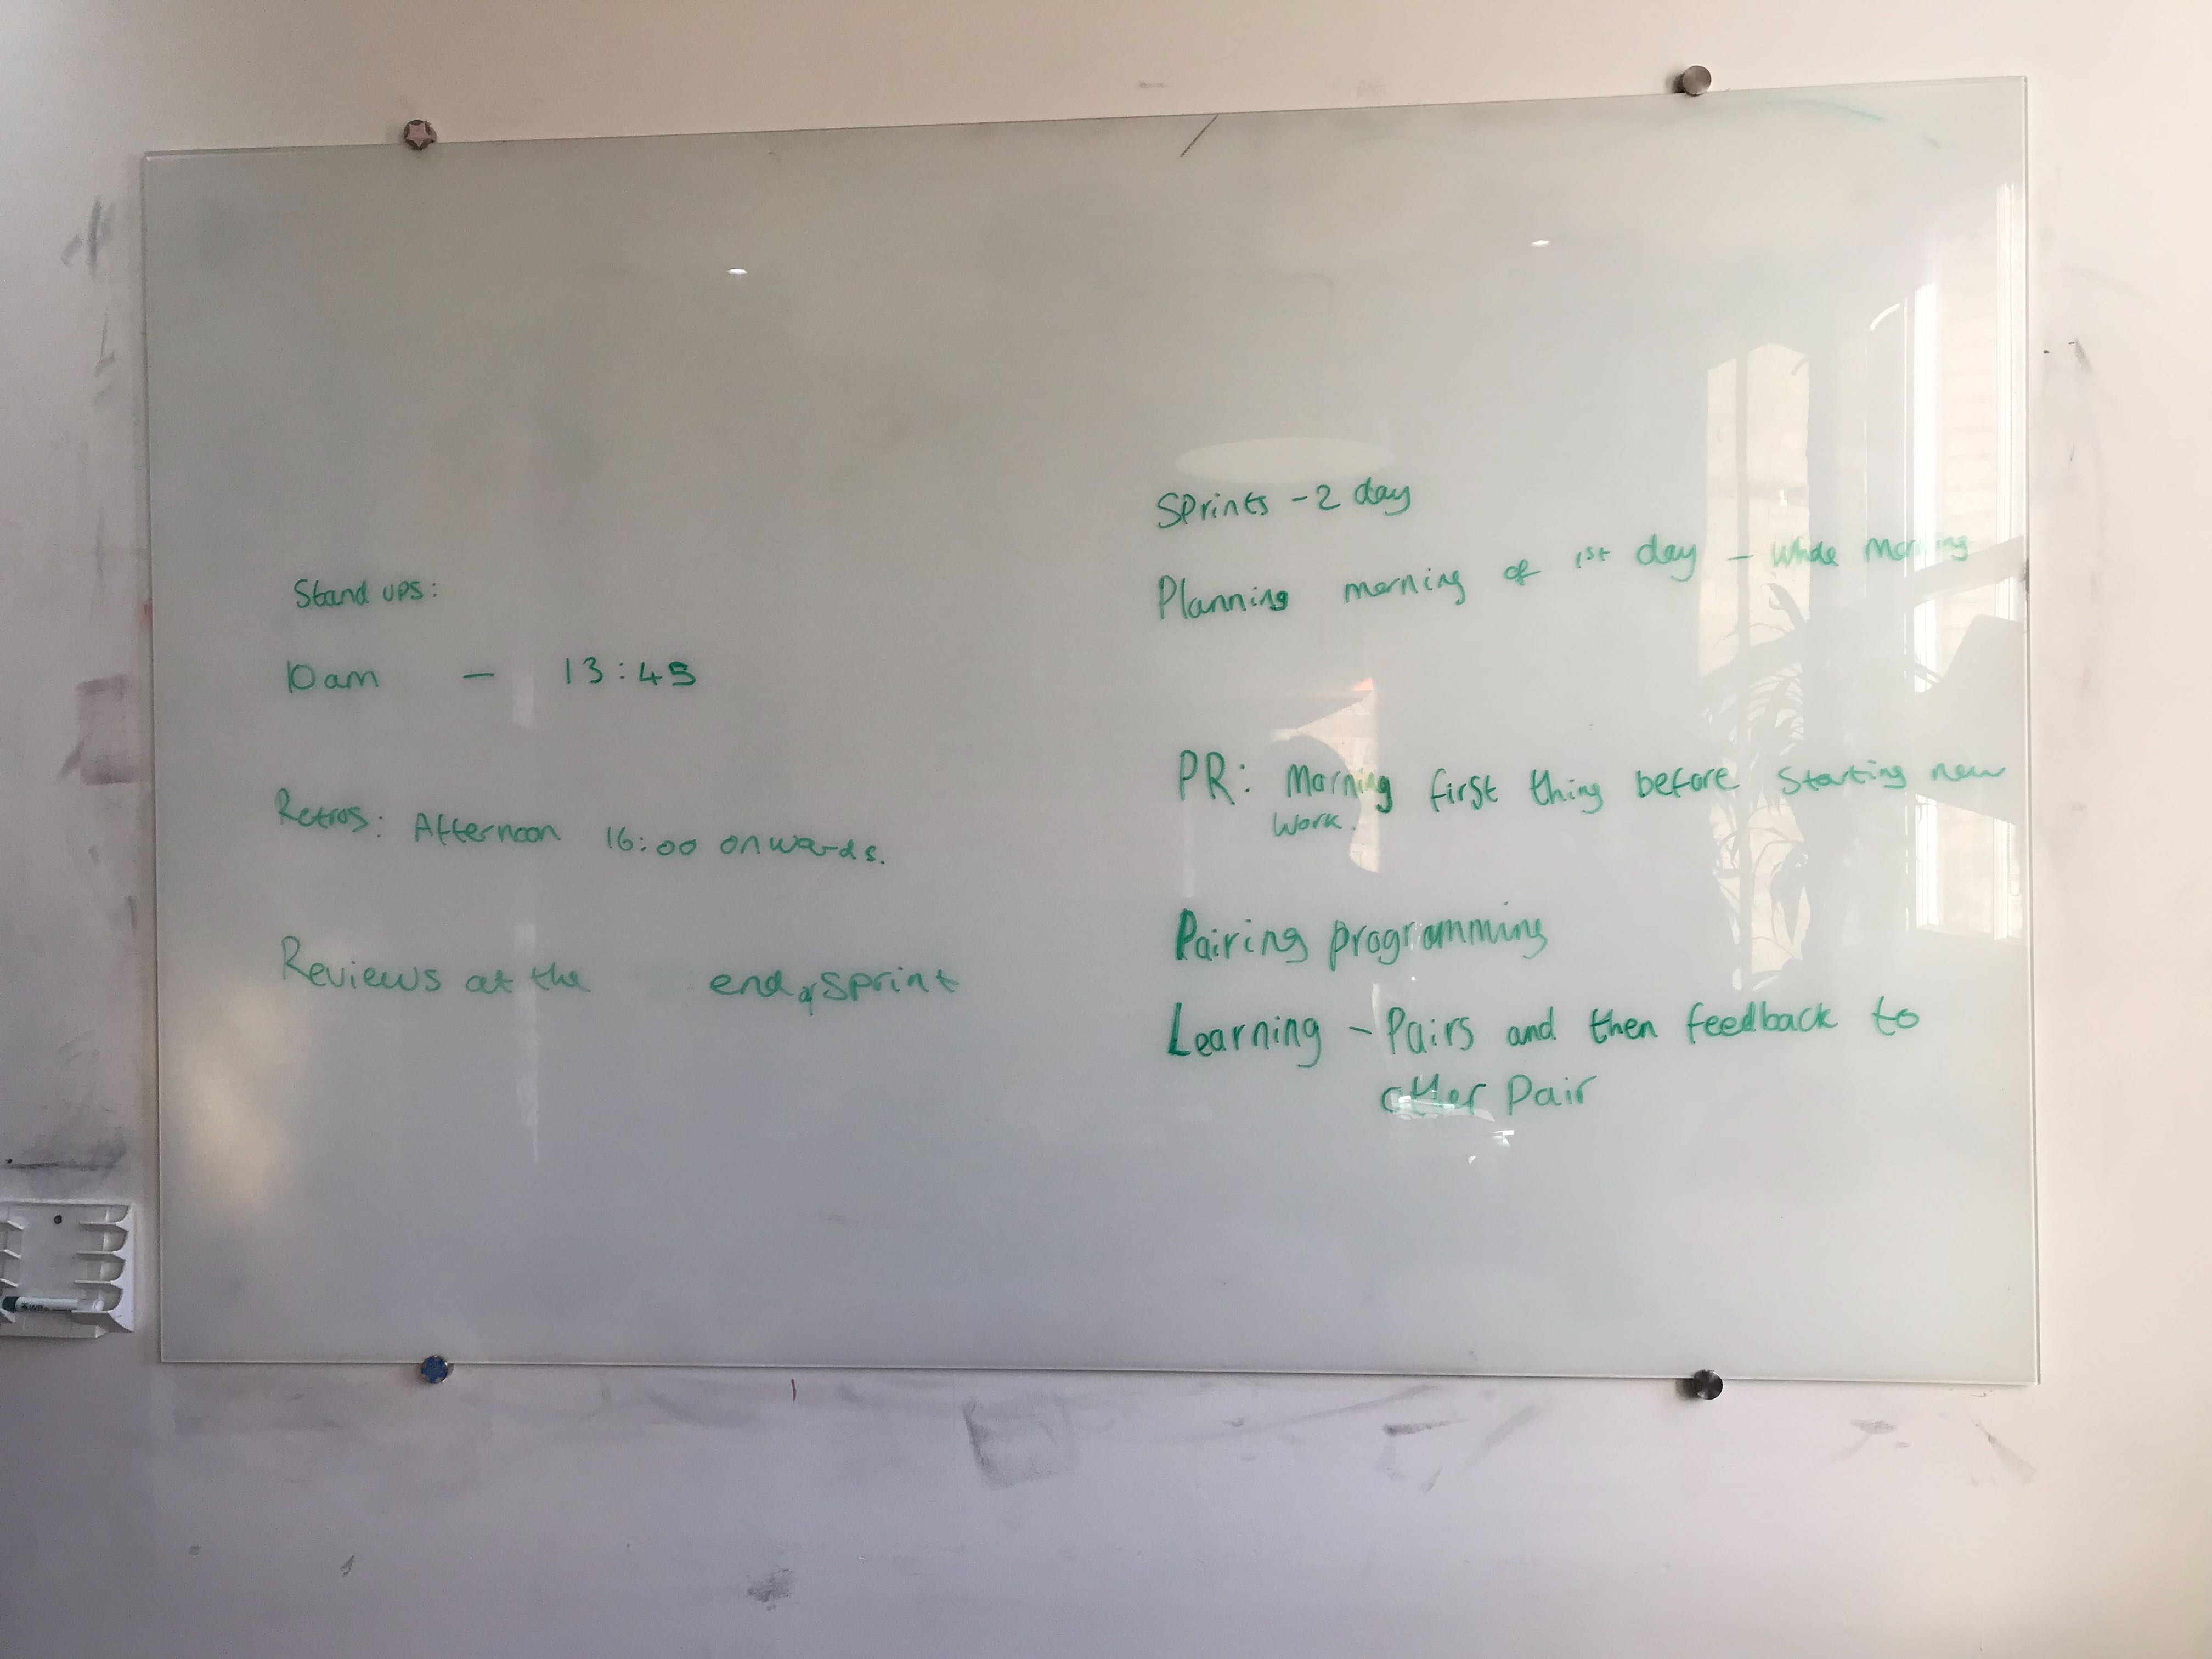 Stand ups:
10am - 13:45
Retros: Afternoon 16:00 onwards.
Reviews at the end of sprint
Sprints - 2 day
Planning morning of 1st day - whole morning
PR: Morning first thing before starting new
work.
Pairing programming
Learning - Pairs and then feedback to
other Pair